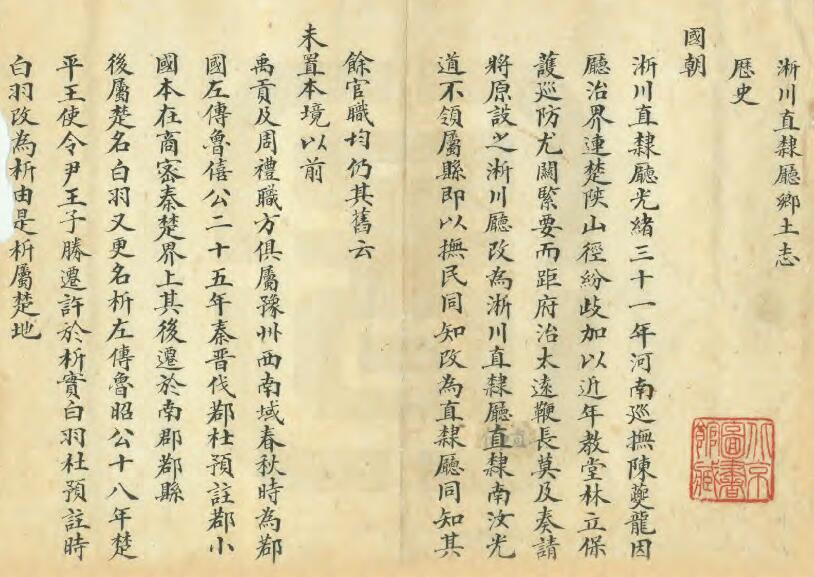 淅川直隸廳鄉土志
歴史
國朝
淅川直隸廳光緒三十一年河南巡撫陳夔龍因
廳治界連楚陝山徑紛歧加以近年教堂林立保
護巡防尤關緊要而距府治太遠鞭長莫及奏請
將原設之淅川廳改為淅川直隸廳直隸南汝光
道不領屬縣即以撫民同知改為直隸廳同知其
餘官職均仍其舊云
未置本境以前
禹貢及周禮職方俱屬豫州西南域春秋時為鄀
國左傳魯僖公二十五年秦晋伐鄀杜預註鄀小
國本在商宻秦楚界上其後遷於南郡鄀縣
後屬楚名白羽又更名析左傳魯昭公十八年楚
平王使令尹王子勝遷許於析實白羽杜預註時
白羽改為析由是析屬楚地
北京圖書館藏